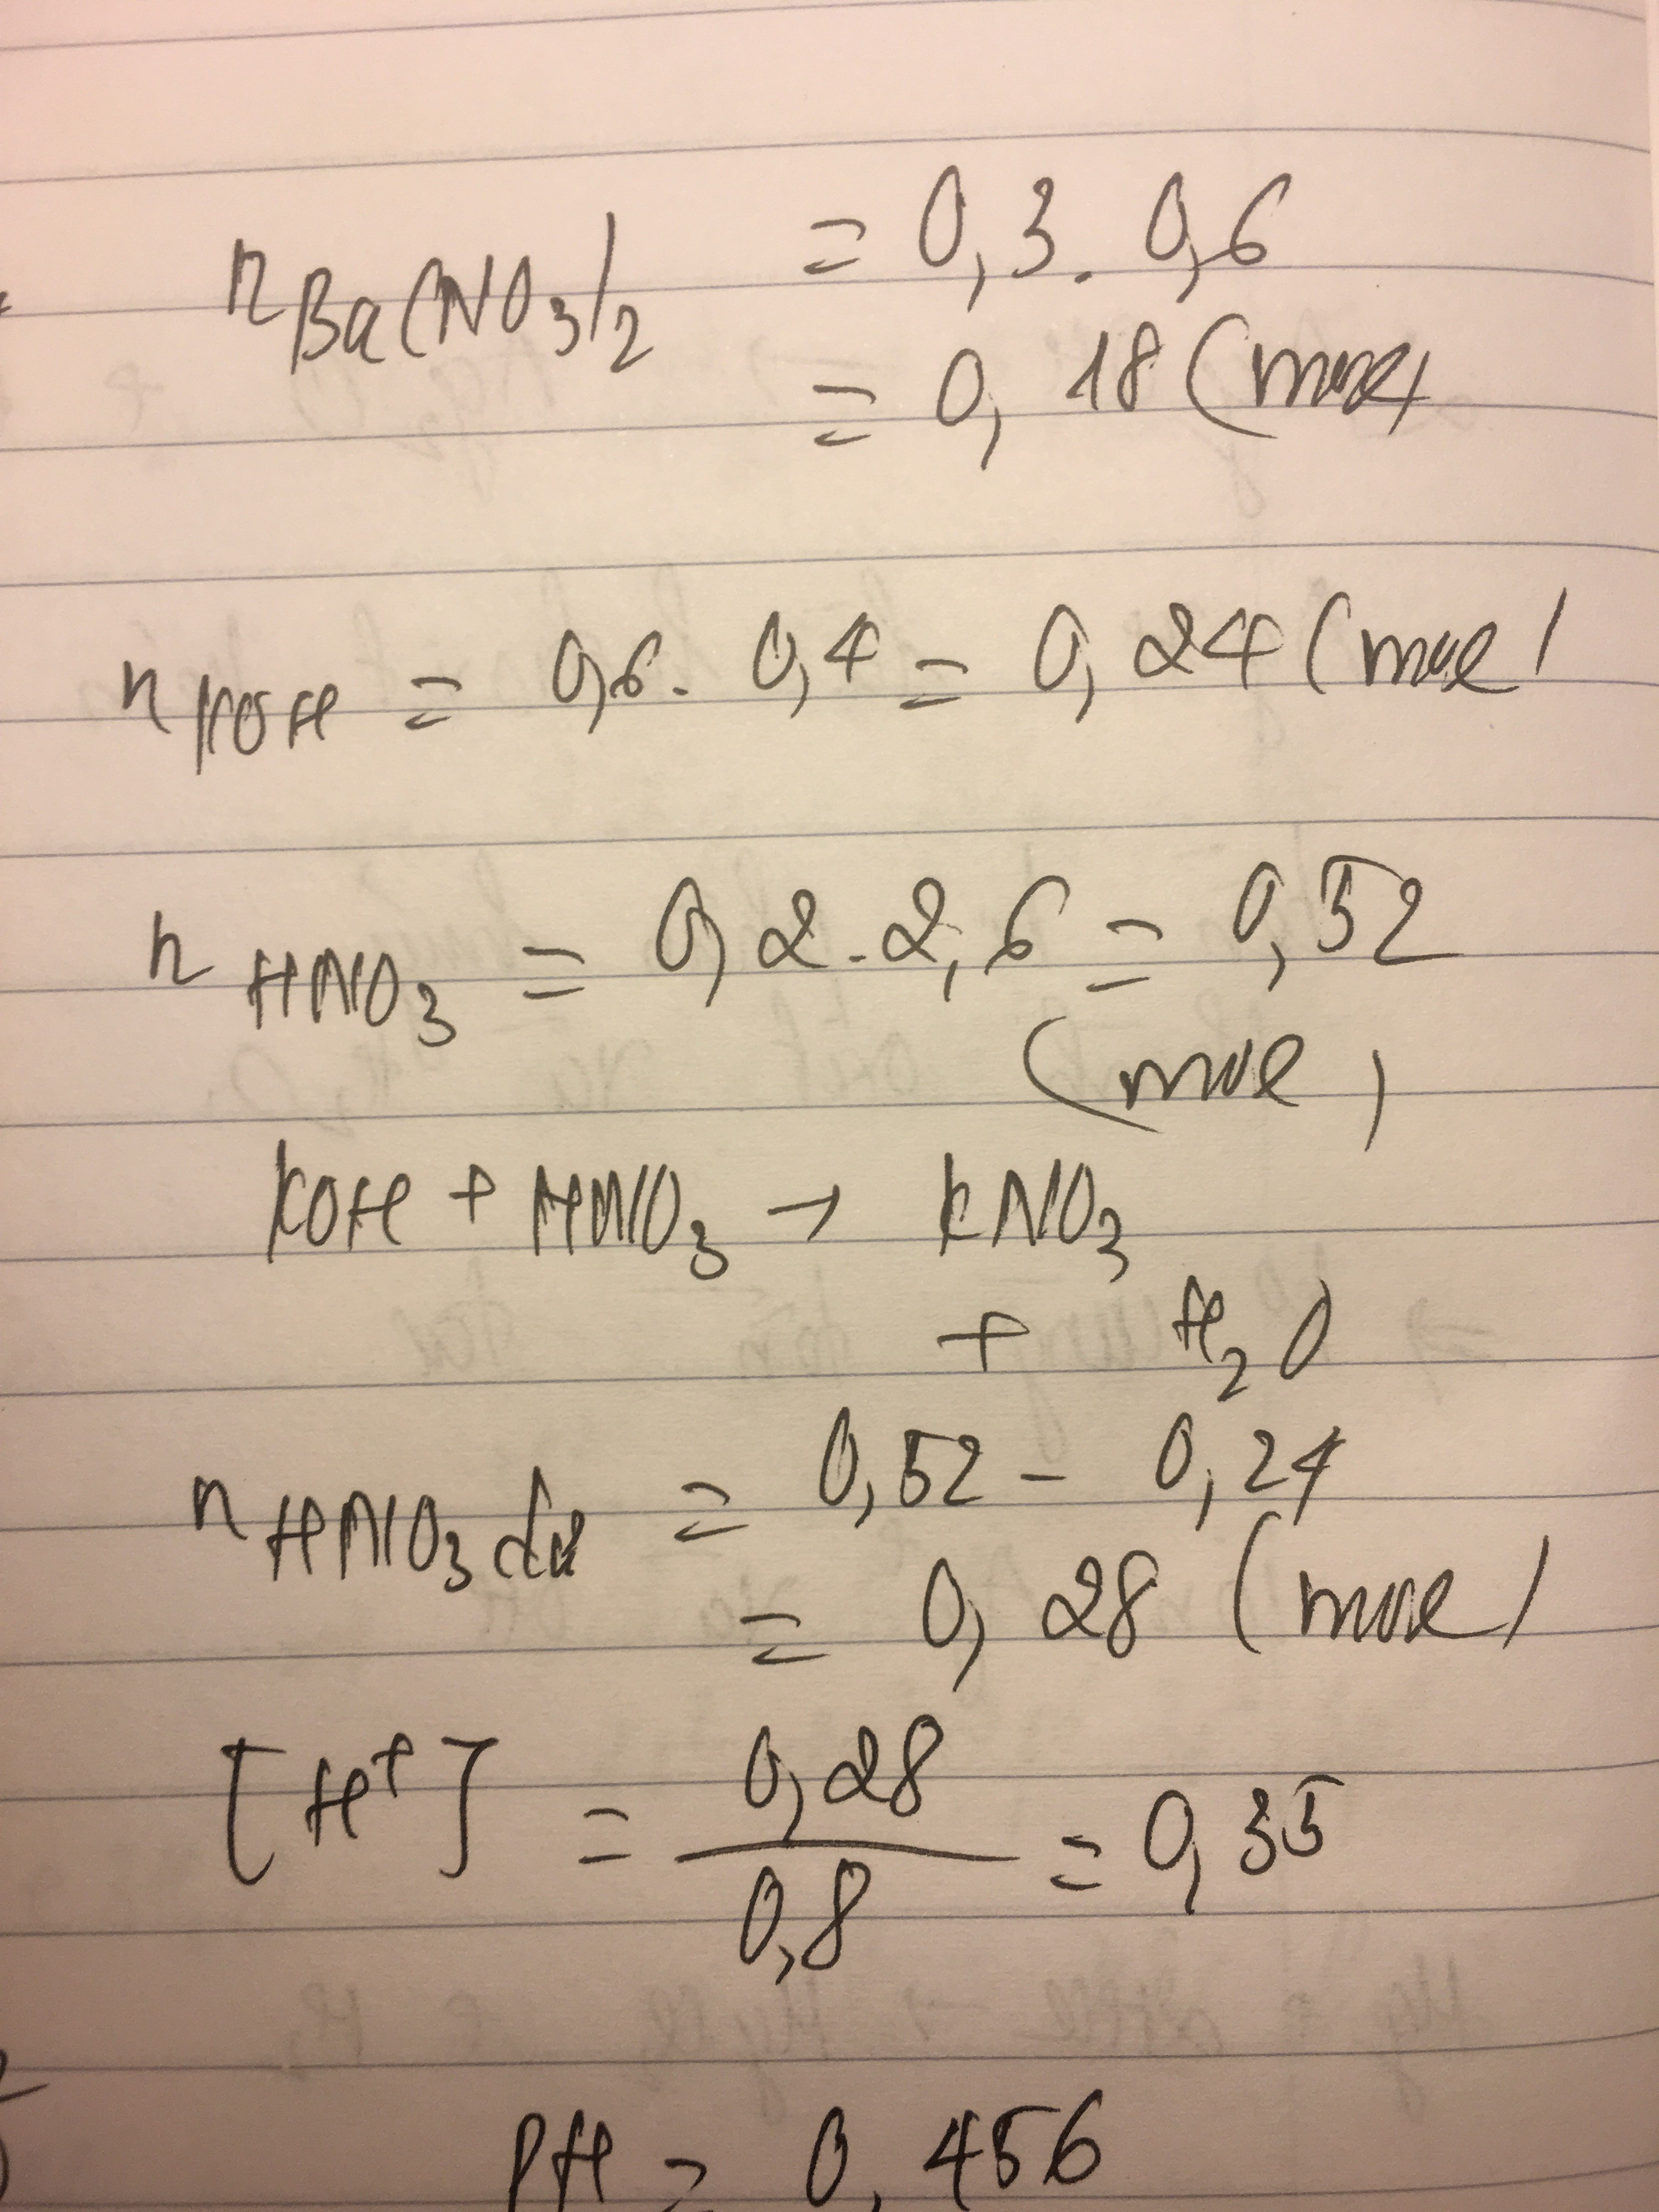 n Ba(NO3)2 = 0,3. 0,6
= 0, 18 (mol)
n KOH = 0,6. 0,4 = 0, 24 (mol)
n HNO3 = 0, 2. 2, 6 = 0, 52
(mol)
KOH + HNO3 → KNO3
+ H2O
n HNO3 dư = 0, 52 - 0, 24
= 0, 28 (mol)
[H+] = 0, 28 / 0,8 = 0, 35
PH = 0, 456